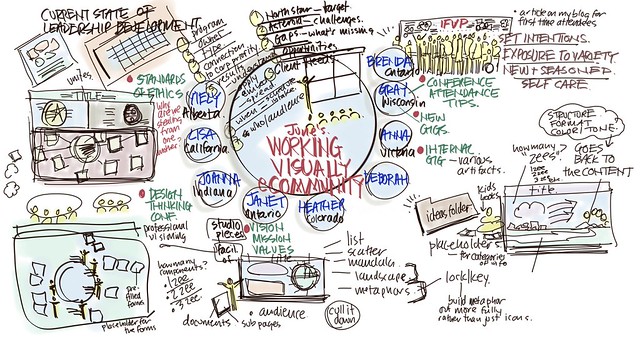 CURRENT STATE OF
LEADERSHIP DEVELOPMENT
program
object
type
connection
to corp priority
results
North star - target
Asteroid - challenges.
Gaps - what's missing
opportunities
Client Needs
who/audience
IFVP
• article on my blog for
first time attendees
SET INTENTIONS.
EXPOSURE TO VARIETY
NEW & SEASONED.
SELF CARE.
unites
• STANDARDS
OF ETHICS
Why
are we
stealing
from
one
another.
NELY
Alberta
LISA
California
JOANNA
Indiana
JANET
Ontario
HEATHER
Colorado
DEBORAH
ANNA
Victoria
GRAY
Wisconsin
BRENDA
Ontario
June's
WORKING
VISUALLY
eCOMMUNITY
• CONFERENCE
ATTENDANCE
TIPS.
• NEW
GIGS.
• INTERNAL
GIG - various
artifacts.
STRUCTURE
FORMAT
COLOR/TONE.
how many
"zees"?
1zee
2zee
3zee
GOES
BACK TO
THE CONTENT
title
kids
books
ideas folder
placeholders
for categories
of info
• DESIGN
THINKING
CONF.
professional
visioning
pre-
filled
forms
placeholder for
the forms
studio
pieces
facil.
of
• VISION
MISSION
VALUES
title
how many
components?
• 1zee
• 2zee
• 3zee.
documents • sub pages
• audience
cull it
down
list
scatter
mandala
landscape
metaphors
lock/key.
build metaphor
out more fully
rather than just icons.